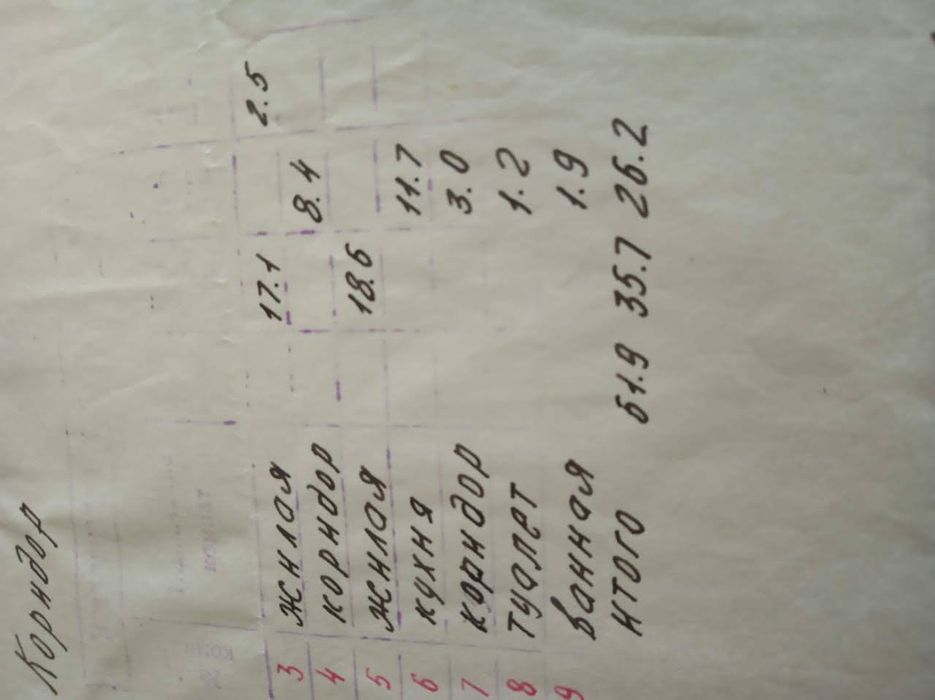 Коридор
3 жилая 17.1 2.5
4 коридор 8.4
5 жилая 18.6
6 кухня 11.7
7 коридор 3.0
8 туалет 1.2
9 ванная 1.9
итого 61.9 35.7 26.2